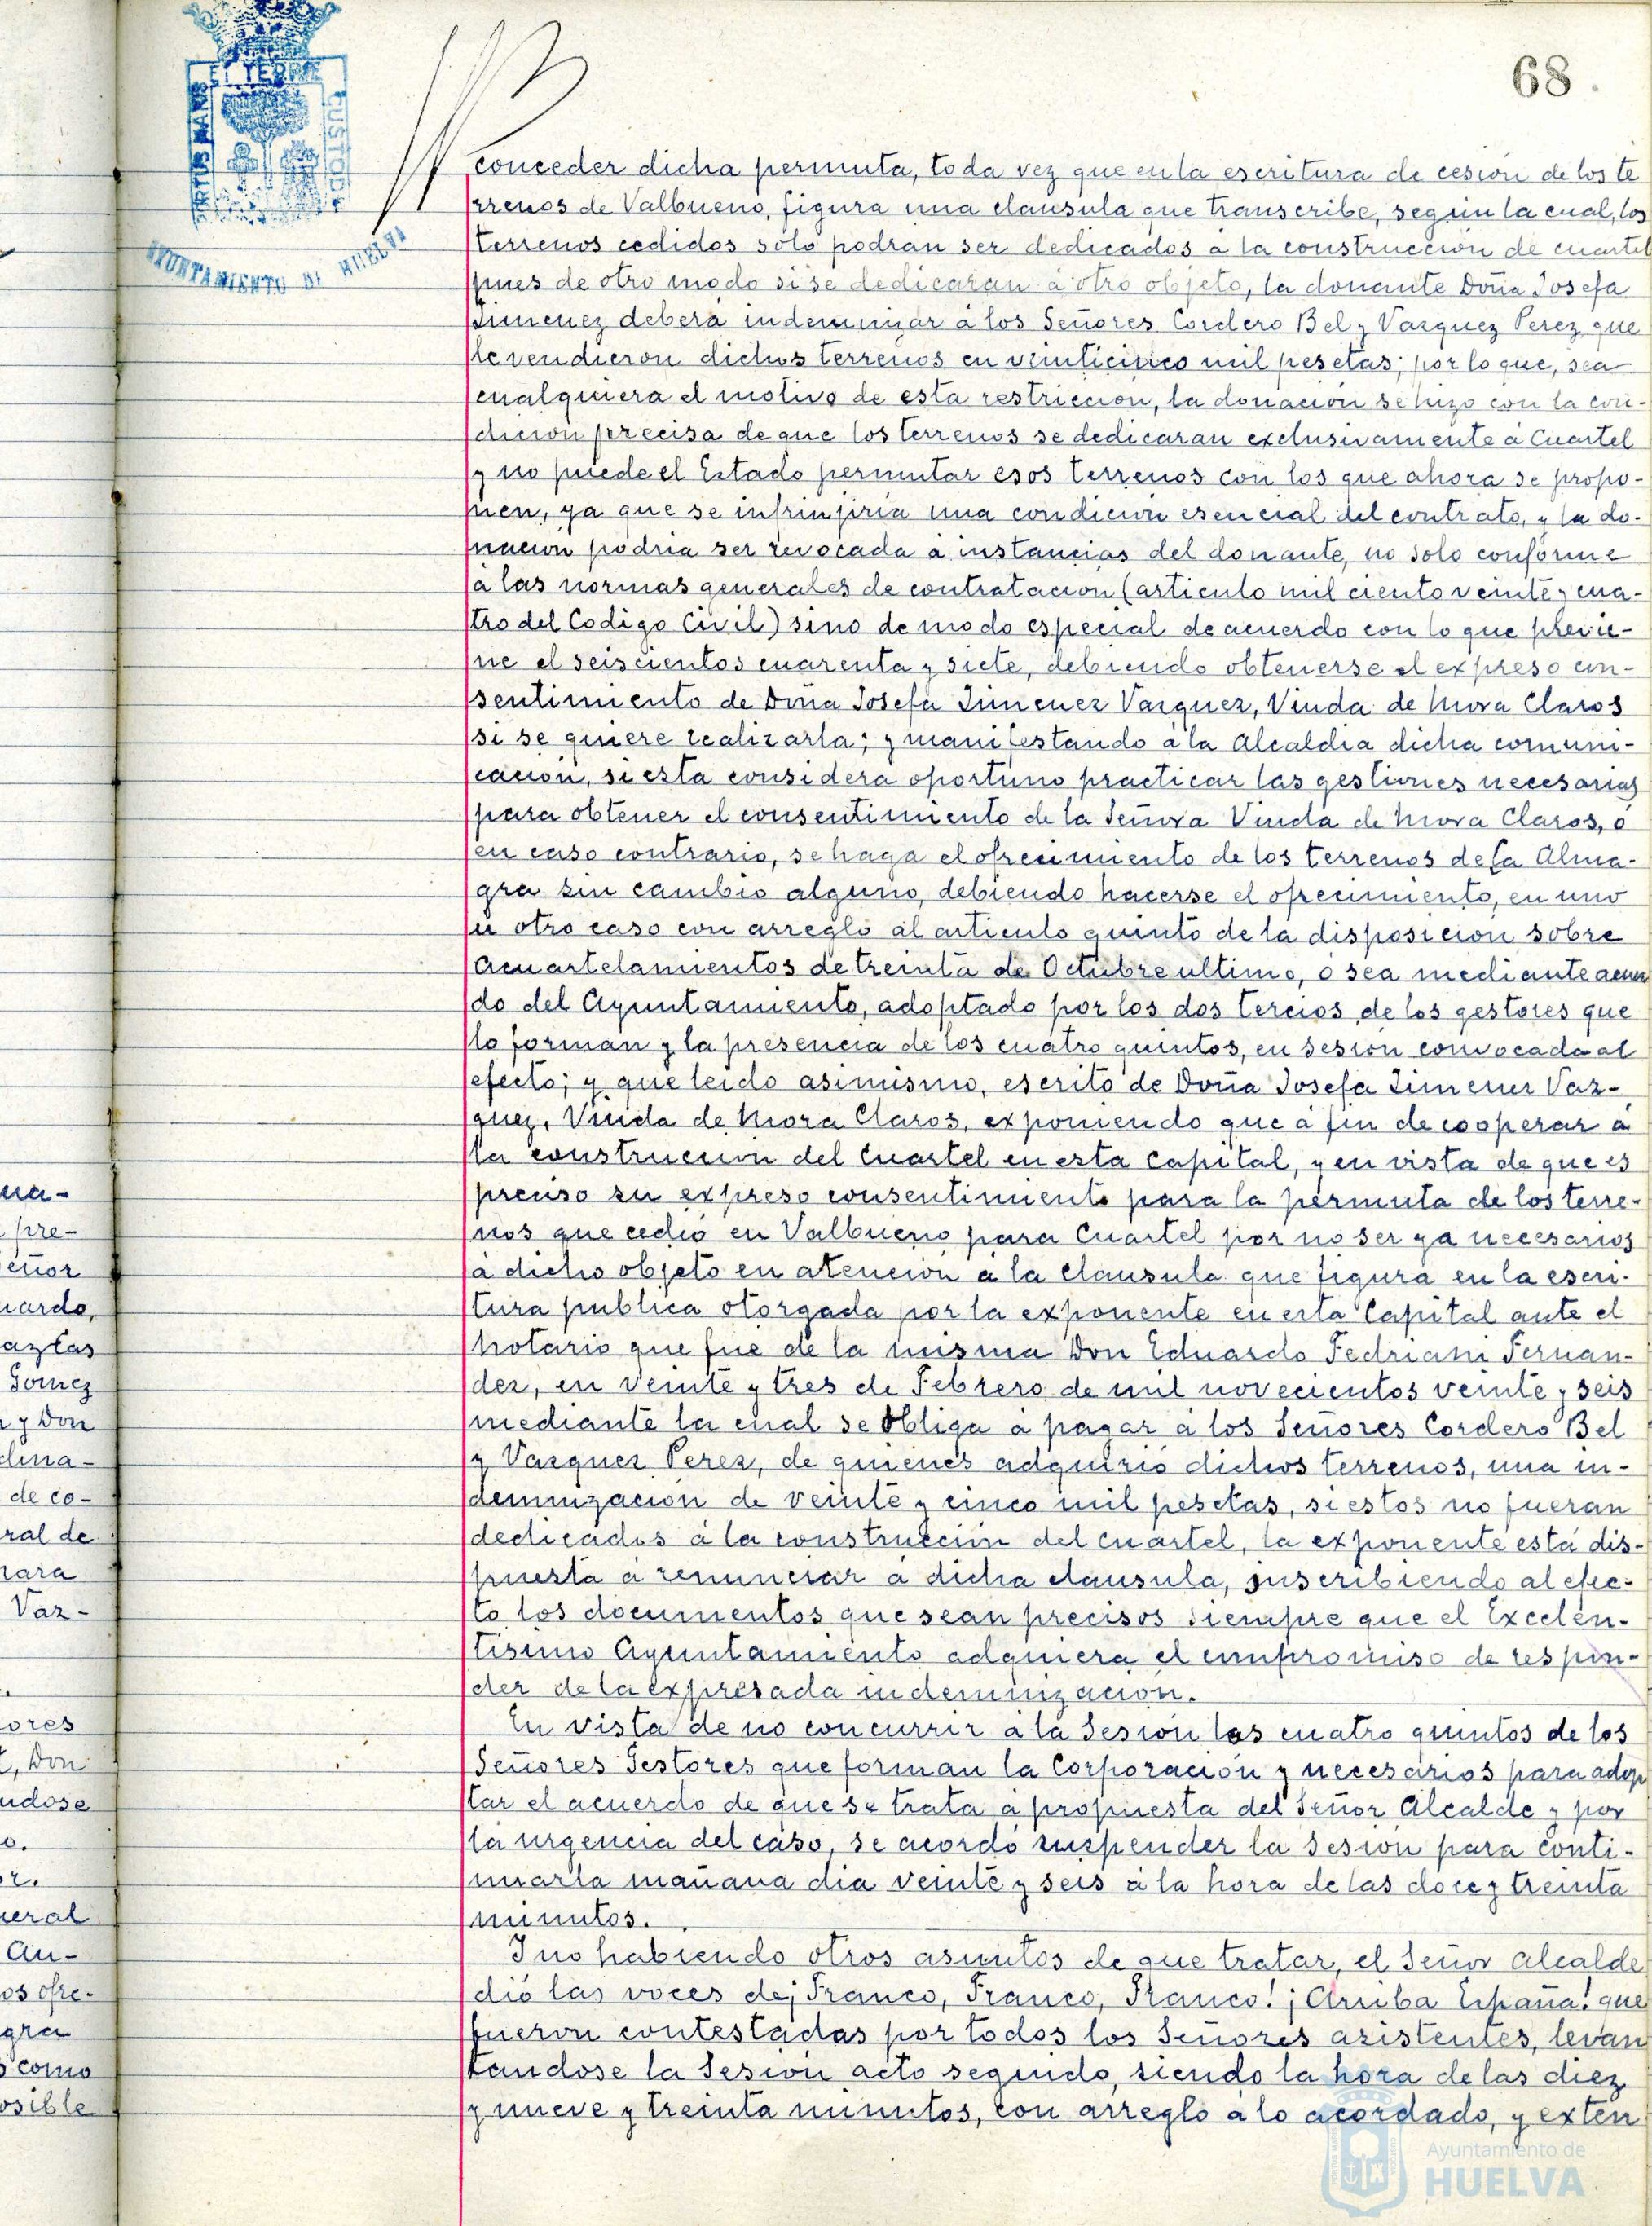 68.
AYUNTAMIENTO DE HUELVA
conceder dicha permuta, toda vez que en la escritura de cesion de los te
rrenos de Valbueno, figura una clausula que transcribe, según la cual, los
terrenos cedidos solo podran ser dedicados a la construccion de cuartel
pues de otro modo si se dedicaran a otro objeto, la donante Doña Josefa
Jimenez deberá indemnizar a los Señores Cordero Bel y Vazquez Perez que
le vendieron dichos terrenos en veinticinco mil pesetas; por lo que, sea
cualquiera el motivo de esta restriccion, la donación se hizo con la con-
dición precisa de que los terrenos se dedicaran exclusivamente a Cuartel
y no puede el Estado permutar esos terrenos con los que ahora se propo-
nen, ya que se infrinjiria una condicion esencial del contrato, y la do-
nacion podria ser revocada a instancias del donante, no solo conforme
a las normas generales de contratacion (articulo mil ciento veinte y cua-
tro del Codigo Civil) sino de modo especial de acuerdo con lo que previe-
ne el seiscientos cuarenta y siete, debiendo obtenerse el expreso con-
sentimiento de Doña Josefa Jimenez Vazquez, Viuda de Mora Claros
si se quiere realizarla; y manifestando a la Alcaldia dicha comuni-
cación, si esta considera oportuno practicar las gestiones necesarias
para obtener el consentimiento de la Señora Viuda de Mora Claros, o
en caso contrario, se haga el ofrecimiento de los terrenos de la Alma-
gra sin cambio alguno, debiendo hacerse el ofrecimiento, en uno
u otro caso con arreglo al articulo quinto de la disposicion sobre
Acuartelamientos de treinta de Octubre ultimo, o sea mediante acuer
do del Ayuntamiento, adoptado por los dos tercios de los gestores que
lo forman y la presencia de los cuatro quintos, en sesion convocada al
efecto; y que leido asimismo, escrito de Doña Josefa Jimenez Vaz-
quez, Viuda de Mora Claros, exponiendo que a fin de cooperar a
la construccion del Cuartel en esta Capital, y en vista de que es
preciso su expreso consentimiento para la permuta de los terre-
nos que cedió en Valbueno para Cuartel por no ser ya necesarios
a dicho objeto en atención a la clausula que figura en la escri-
tura publica otorgada por la exponente en esta Capital ante el
Notario que fue de la misma Don Eduardo Fedriani Fernan-
dez, en veinte y tres de Febrero de mil novecientos veinte y seis
mediante la cual se obliga a pagar a los Señores Cordero Bel
y Vazquez Perez, de quienes adquirio dichos terrenos, una in-
demnización de veinte y cinco mil pesetas, si estos no fueran
dedicados a la construccion del cuartel, la exponente está dis-
puesta a renunciar a dicha clausula, suscribiendo al efec-
to los documentos que sean precisos siempre que el Excelen-
tisimo Ayuntamiento adquiera el compromiso de respon-
der de la expresada indemnizacion.
En vista de no concurrir a la Sesion los cuatro quintos de los
Señores Gestores que forman la Corporación y necesarios para adop
tar el acuerdo de que se trata a propuesta del Señor Alcalde y por
la urgencia del caso, se acordó suspender la Sesion para conti-
nuarla mañana dia veinte y seis a la hora de las doce y treinta
minutos.
Y no habiendo otros asuntos de que tratar, el Señor Alcalde
dió las voces de ¡Franco, Franco, Franco! ¡Arriba España! que
fueron contestadas por todos los Señores asistentes, levan
tandose la Sesion acto seguido, siendo la hora de las diez
y nueve y treinta minutos, con arreglo a lo acordado, y exten
ua-
pre-
eñor
uardo,
az las
Gomez
y Don
dina-
de co-
ral de
para
Vaz-
ores
, Don
ndose
o.
r.
neral
Au-
os ofre-
gra
o como
osible
Ayuntamiento de
HUELVA